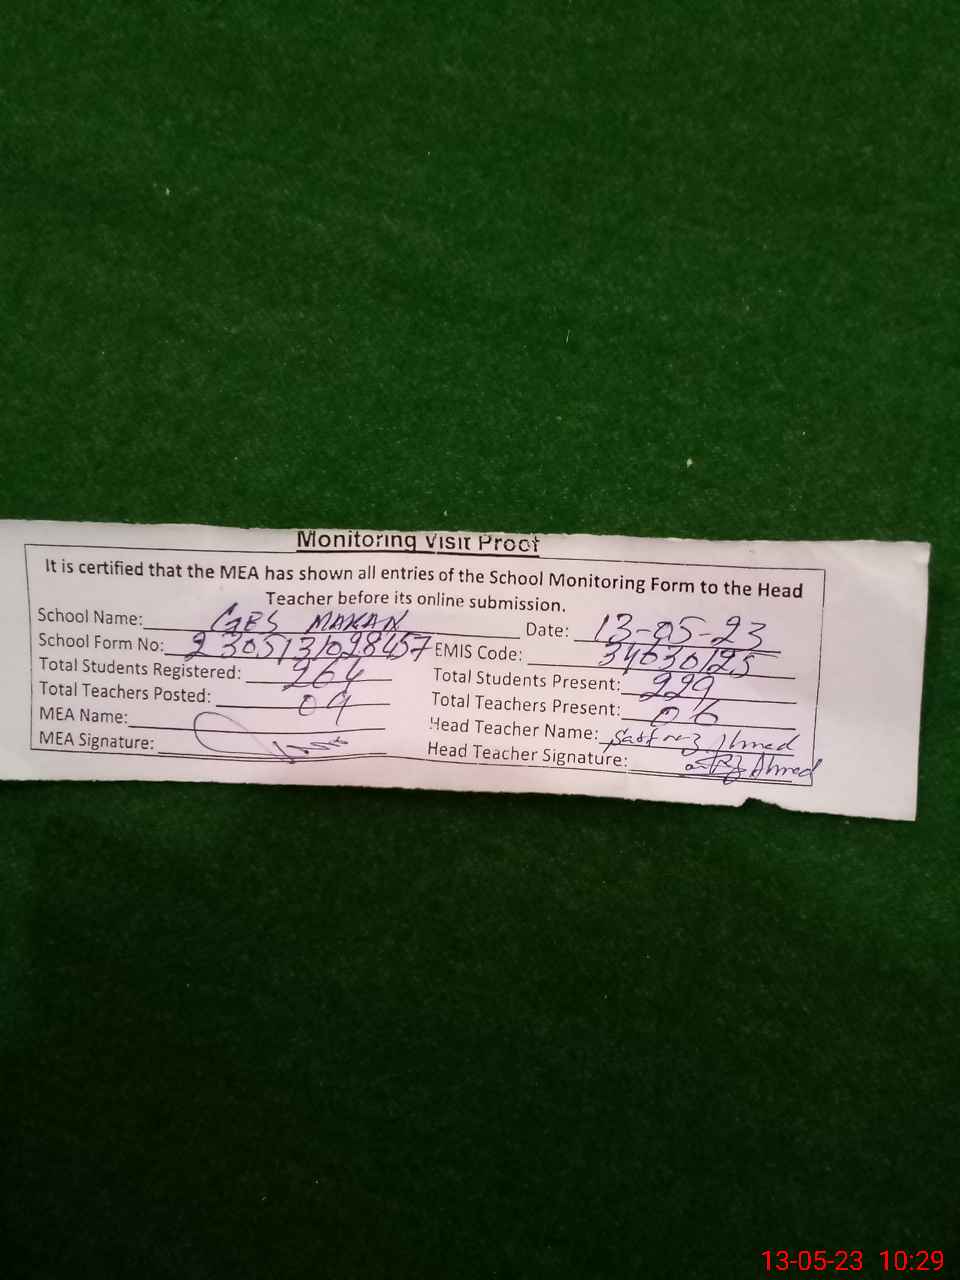 Monitoring Visit Proof
It is certified that the MEA has shown all entries of the School Monitoring Form to the Head
Teacher before its online submission.
School Name: GES MAKAN Date: 13-05-23
School Form No: 2305131028457 EMIS Code: 34030125
Total Students Registered: 264 Total Students Present: 229
Total Teachers Posted: 09 Total Teachers Present: 06
MEA Name: Head Teacher Name: Ahmed
MEA Signature: Head Teacher Signature: Ahmed
13-05-23 10:29